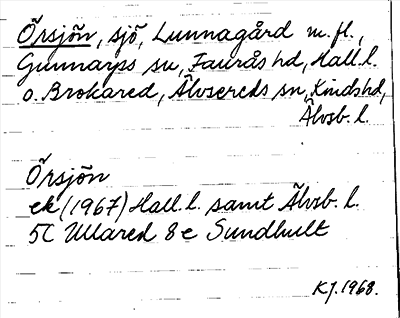 Örsjön, sjö, Lunnagård m.fl.,
Gunnarps sn, Faurås hd, Hall.l.
o. Brokared, Älvsereds sn, Kinds hd,
Älvsb. l.
Örsjön
ek (1967) Hall. l. samt Älvsb. l.
5C Ullared 8e Sundhult
KJ. 1968.